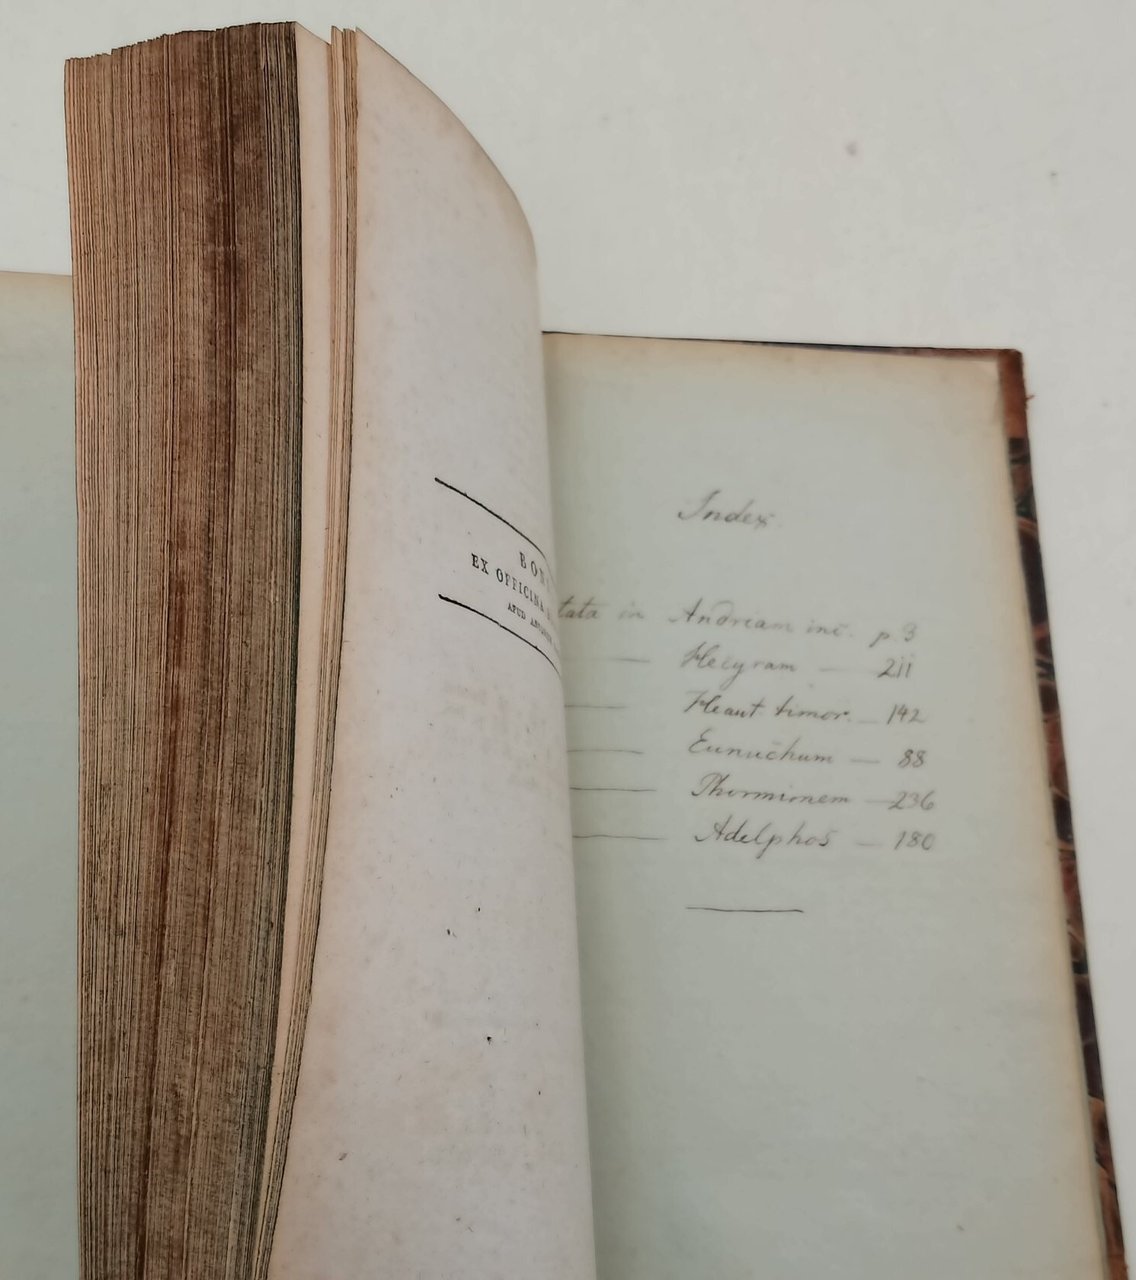 EX OFFICINA
APUD
Index
tata in Andriam inc. p. 3
Hecyram — 211
Heaut. timor. — 142
Eunuchum — 88
Phormionem — 236
Adelphos — 180